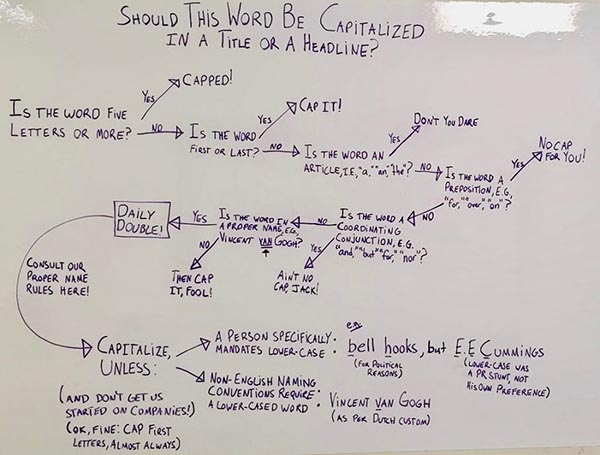 SHOULD THIS WORD BE CAPITALIZED
IN A TITLE OR A HEADLINE?
IS THE WORD FIVE
LETTERS OR MORE?
YES
CAPPED!
NO
IS THE WORD
FIRST OR LAST?
YES
CAP IT!
NO
IS THE WORD AN
ARTICLE, I.E., "a," "an," "the"?
YES
DON'T YOU DARE
NO
IS THE WORD A
PREPOSITION, E.G.
"for," "over," "on"?
YES
NO CAP
FOR YOU!
NO
IS THE WORD A
COORDINATING
CONJUNCTION, E.G.
"and," "but" "for," "nor"?
YES
AIN'T NO
CAP, JACK!
NO
IS THE WORD IN
A PROPER NAME, E.G.,
VINCENT VAN GOGH?
NO
THEN CAP
IT, FOOL!
YES
DAILY
DOUBLE!
CONSULT OUR
PROPER NAME
RULES HERE!
CAPITALIZE,
UNLESS:
(AND DON'T GET US
STARTED ON COMPANIES!)
(OK, FINE: CAP FIRST
LETTERS, ALMOST ALWAYS)
A PERSON SPECIFICALLY
MANDATES LOWER-CASE.
e.g.
bell hooks, but E.E. CUMMINGS
(FOR POLITICAL
REASONS)
(LOWER-CASE WAS
A PR STUNT, NOT
HIS OWN PREFERENCE)
NON-ENGLISH NAMING
CONVENTIONS REQUIRE
A LOWER-CASED WORD
• VINCENT VAN GOGH
(AS PER DUTCH CUSTOM)